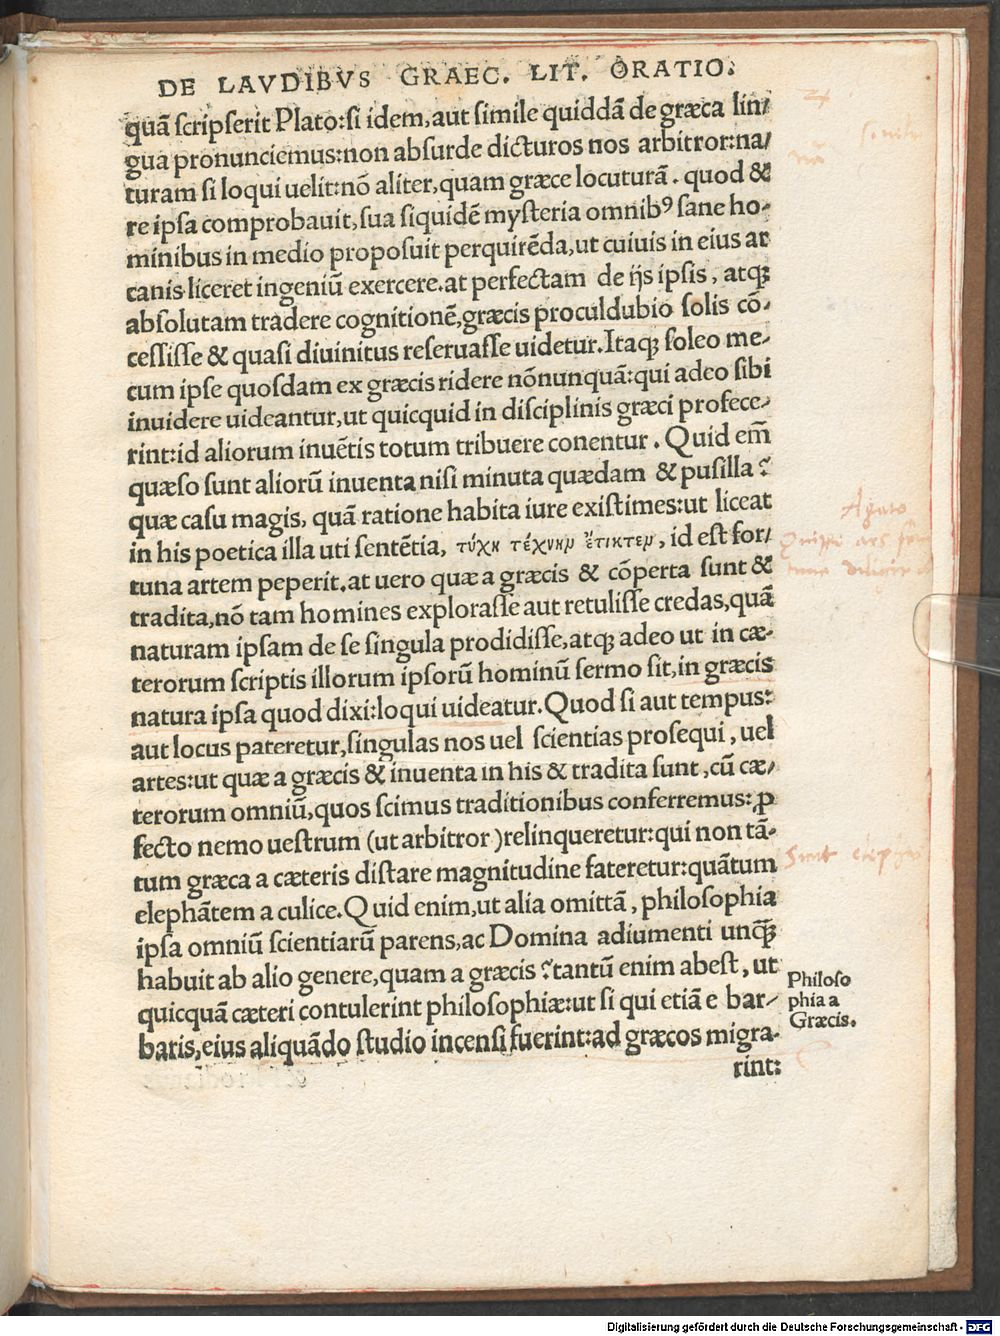 DE LAVDIBVS GRAEC. LIT. ORATIO.
quã ſcripſerit Plato:ſi idem,aut ſimile quiddã de græca lin/
gua pronunciemus:non abſurde dicturos nos arbitror:na/
turam ſi loqui uelit:nõ aliter,quam græce locuturã. quod &
re ipſa comprobauit,ſua ſiquidẽ myſteria omnibꝰ ſane ho-
minibus in medio propoſuit perquirẽda,ut cuiuis in eius ar
canis liceret ingeniũ exercere.at perfectam de ijs ipſis, atqꝫ
abſolutam tradere cognitionẽ,græcis proculdubio ſolis cõ-
ceſſiſſe & quaſi diuinitus reſeruaſſe uidetur.Itaqꝫ ſoleo me-
cum ipſe quoſdam ex græcis ridere nõnunquã:qui adeo ſibi
inuidere uideantur,ut quicquid in diſciplinis græci profece-
rint:id aliorum inuẽtis totum tribuere conentur. Quid em̃
quæſo ſunt aliorũ inuenta niſi minuta quædam & puſilla?
quæ caſu magis, quã ratione habita iure exiſtimes:ut liceat
in his poetica illa uti ſentẽtia, τύχη τέχνην ἔτικτεν, id eſt for/
tuna artem peperit.at uero quæ a græcis & cõperta ſunt &
tradita,nõ tam homines exploraſſe aut retuliſſe credas,quã
naturam ipſam de ſe ſingula prodidiſſe,atqꝫ adeo ut in cæ-
terorum ſcriptis illorum ipſorũ hominũ ſermo ſit,in græcis
natura ipſa quod dixi:loqui uideatur.Quod ſi aut tempus:
aut locus pateretur,ſingulas nos uel ſcientias proſequi, uel
artes:ut quæ a græcis & inuenta in his & tradita ſunt,cũ cæ/
terorum omniũ,quos ſcimus traditionibus conferremus:ꝓ
fecto nemo ueſtrum (ut arbitror)relinqueretur:qui non tã-
tum græca a cæteris diſtare magnitudine fateretur:quãtum
elephãtem a culice.Quid enim,ut alia omittã, philoſophia
ipſa omniũ ſcientiarũ parens,ac Domina adiumenti unq̃ꝫ
habuit ab alio genere,quam a græcis?tantũ enim abeſt, ut
quicquã cæteri contulerint philoſophiæ:ut ſi qui etiã e bar-
baris,eius aliquãdo ſtudio incenſi fuerint:ad græcos migra-
rint:
Philoſo
phia a
Græcis.
Agato
Digitalisierung gefördert durch die Deutsche Forschungsgemeinschaft - DFG